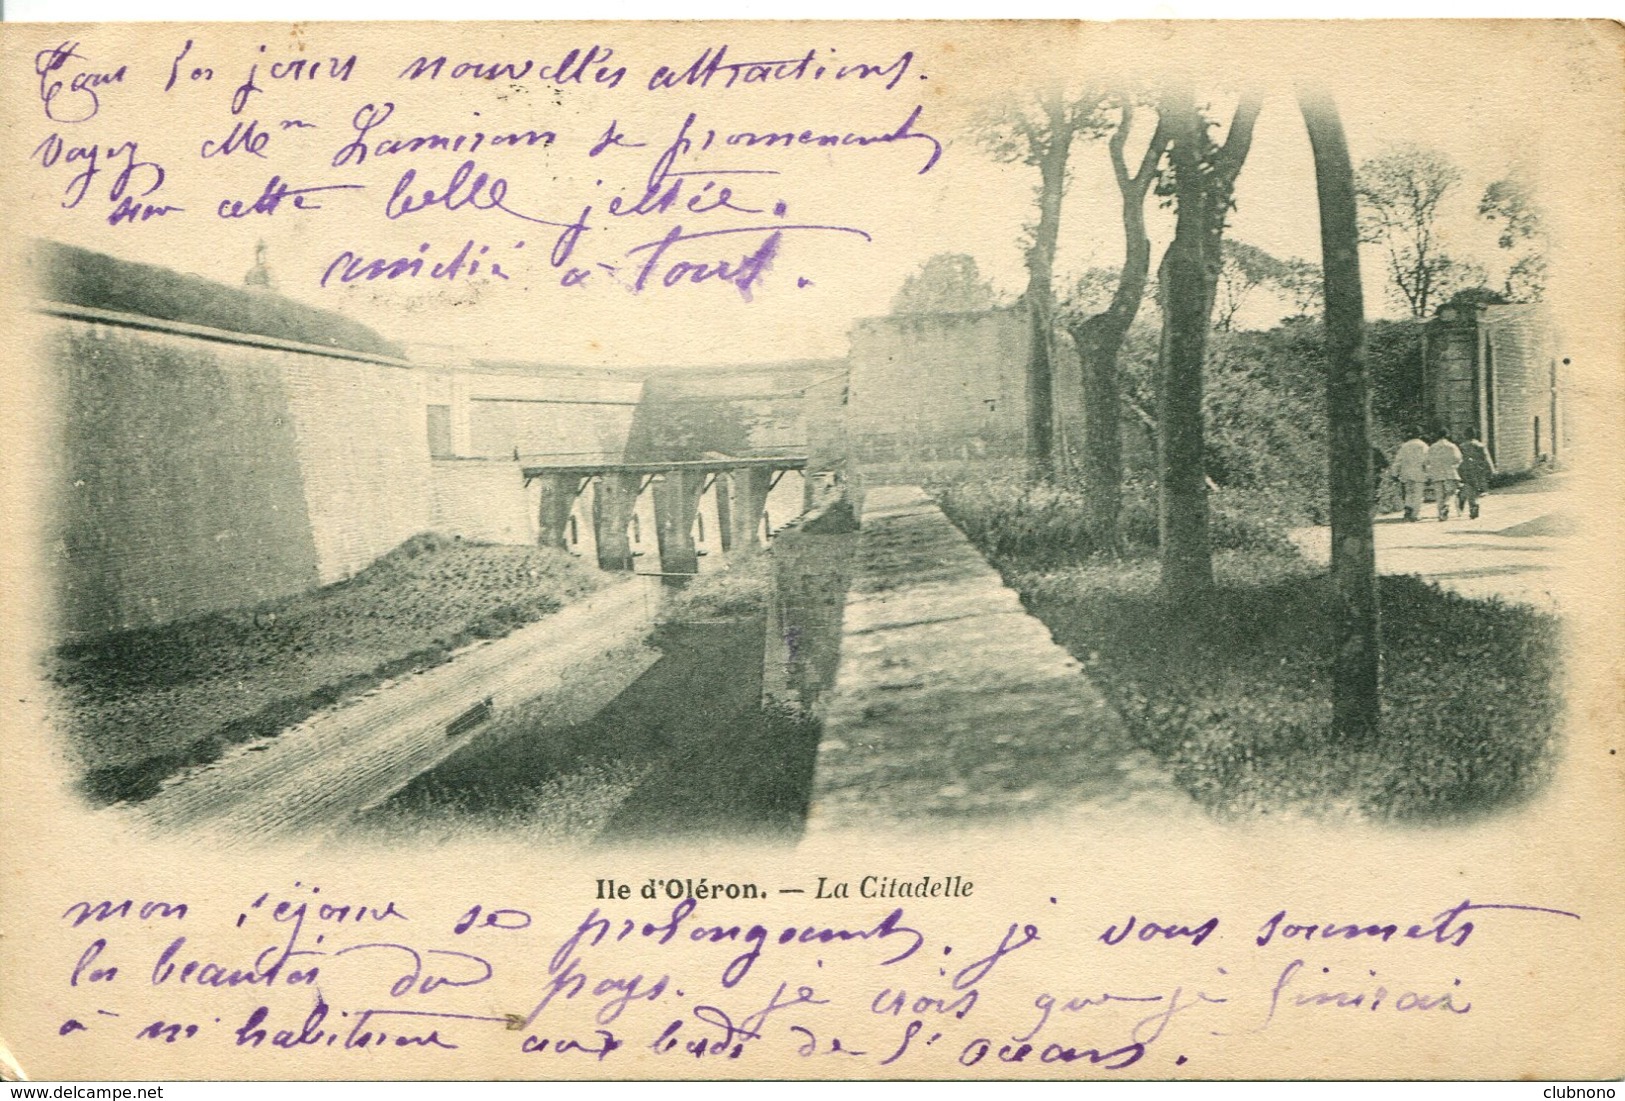 Tous les jours nouvelles attractions.
Voyez Mme Lamirau se promenant
sur cette belle jettée.
amitié à tout.
Ile d'Oléron. — La Citadelle
mon séjour se prolongeant, je vous soumets
les beautés du pays. je crois que je finirai
à m'habituer aux bords de l'océan.
clubnono